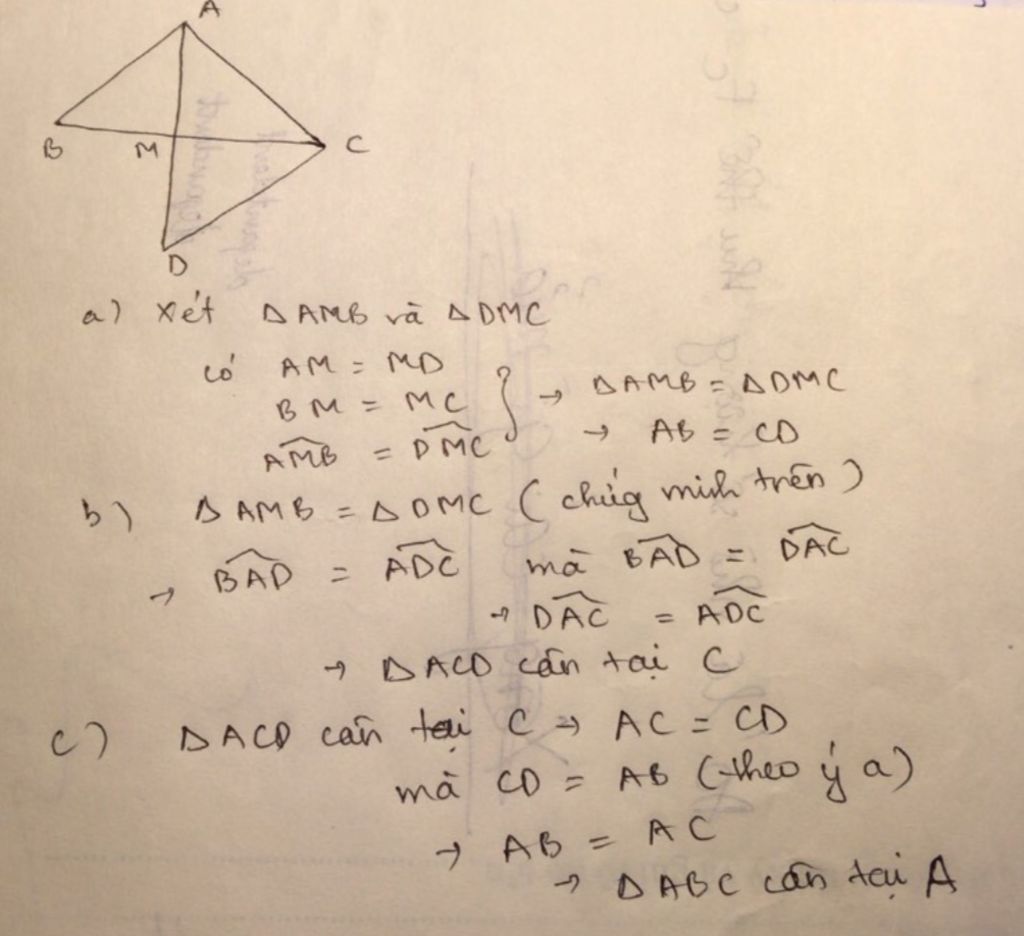 A
B M C
D
a) Xét ΔAMB và ΔDMC
có AM = MD
BM = MC } → ΔAMB = ΔDMC
\widehat{AMB} = \widehat{DMC} → AB = CD
b) ΔAMB = ΔDMC (chứg minh trên)
→ \widehat{BAD} = \widehat{ADC} mà \widehat{BAD} = \widehat{DAC}
→ \widehat{DAC} = \widehat{ADC}
→ ΔACD cân tại C
c) ΔACD cân tại C → AC = CD
mà CD = AB (theo ý a)
→ AB = AC
→ ΔABC cân tại A